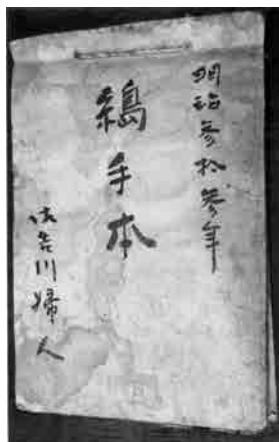 明治参拾参年
縞手本
川婦人